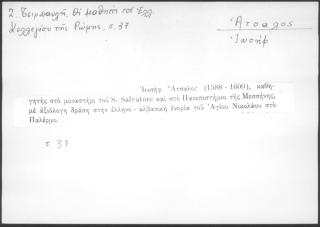 2. Τσιρπανλῆ, Οἱ μαθητὲς τοῦ Ἑλλ.
Κολλεγίου τῆς Ρώμης, σ. 37
Ἀτσαλος
Ἰωσήφ
Ἰωσὴφ Ἄτσαλος (1588 - 1600), καθη-
γητὴς στὸ μοναστήρι τοῦ S. Salvatore καὶ στὸ Πανεπιστήμιο τῆς Μεσσήνης,
μὲ ἀξιόλογη δράση στὴν ἑλληνο - αλβανικὴ ἐνορία τοῦ Ἁγίου Νικολάου στὸ
Παλέρμο.
σ. 37